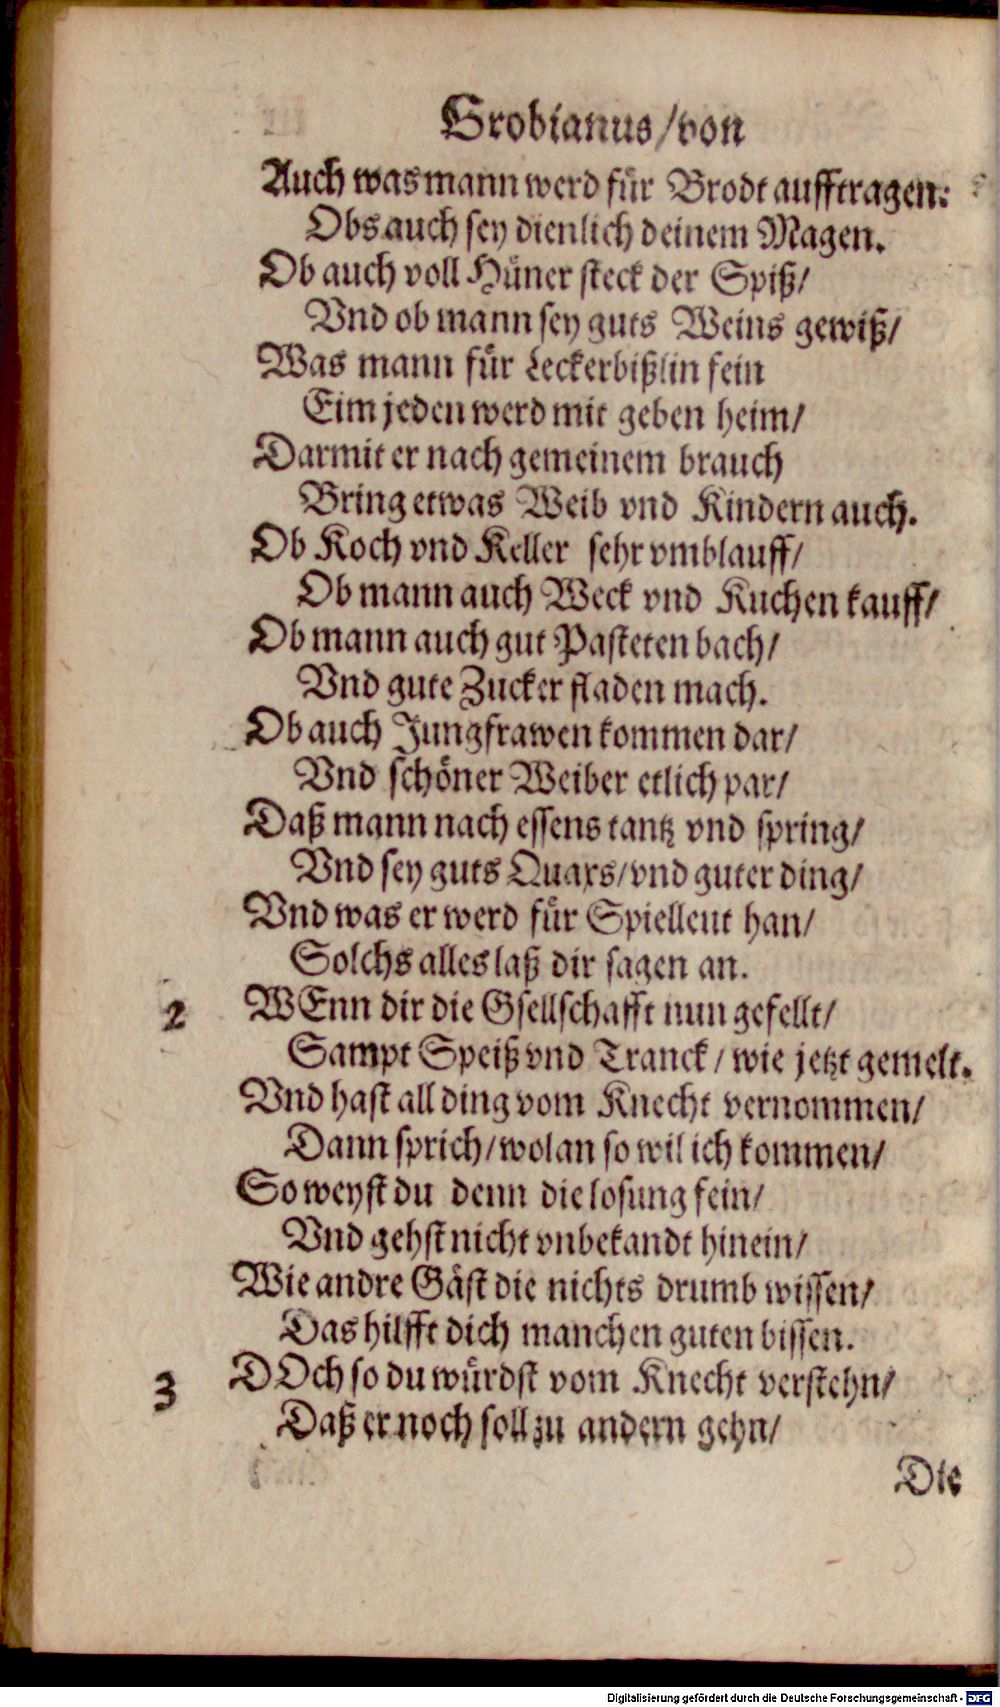 Grobianus/von
Auch was mann werd für Brodt aufftragen:
Obs auch sey dienlich deinem Magen.
Ob auch voll Hüner steck der Spiß/
Vnd ob mann sey guts Weins gewiß/
Was mann für Leckerbißlin fein
Eim jeden werd mit geben heim/
Darmit er nach gemeinem brauch
Bring etwas Weib vnd Kindern auch.
Ob Koch vnd Keller sehr vmblauff/
Ob mann auch Weck vnd Kuchen kauff/
Ob mann auch gut Pasteten bach/
Vnd gute Zucker fladen mach.
Ob auch Jungfrawen kommen dar/
Vnd schöner Weiber etlich par/
Daß mann nach essens tantz vnd spring/
Vnd sey guts Quaxs/vnd guter ding/
Vnd was er werd für Spielleut han/
Solchs alles laß dir sagen an.
2 WEnn dir die Gsellschafft nun gefellt/
Sampt Speiß vnd Tranck/wie jetzt gemelt.
Vnd hast all ding vom Knecht vernommen/
Dann sprich/wolan so wil ich kommen/
So weyst du denn die losung fein/
Vnd gehst nicht vnbekandt hinein/
Wie andre Gäst die nichts drumb wissen/
Das hilfft dich manchen guten bissen.
3 DOch so du würdst vom Knecht verstehn/
Daß er noch soll zu andern gehn/
Die
Digitalisierung gefördert durch die Deutsche Forschungsgemeinschaft - DFG